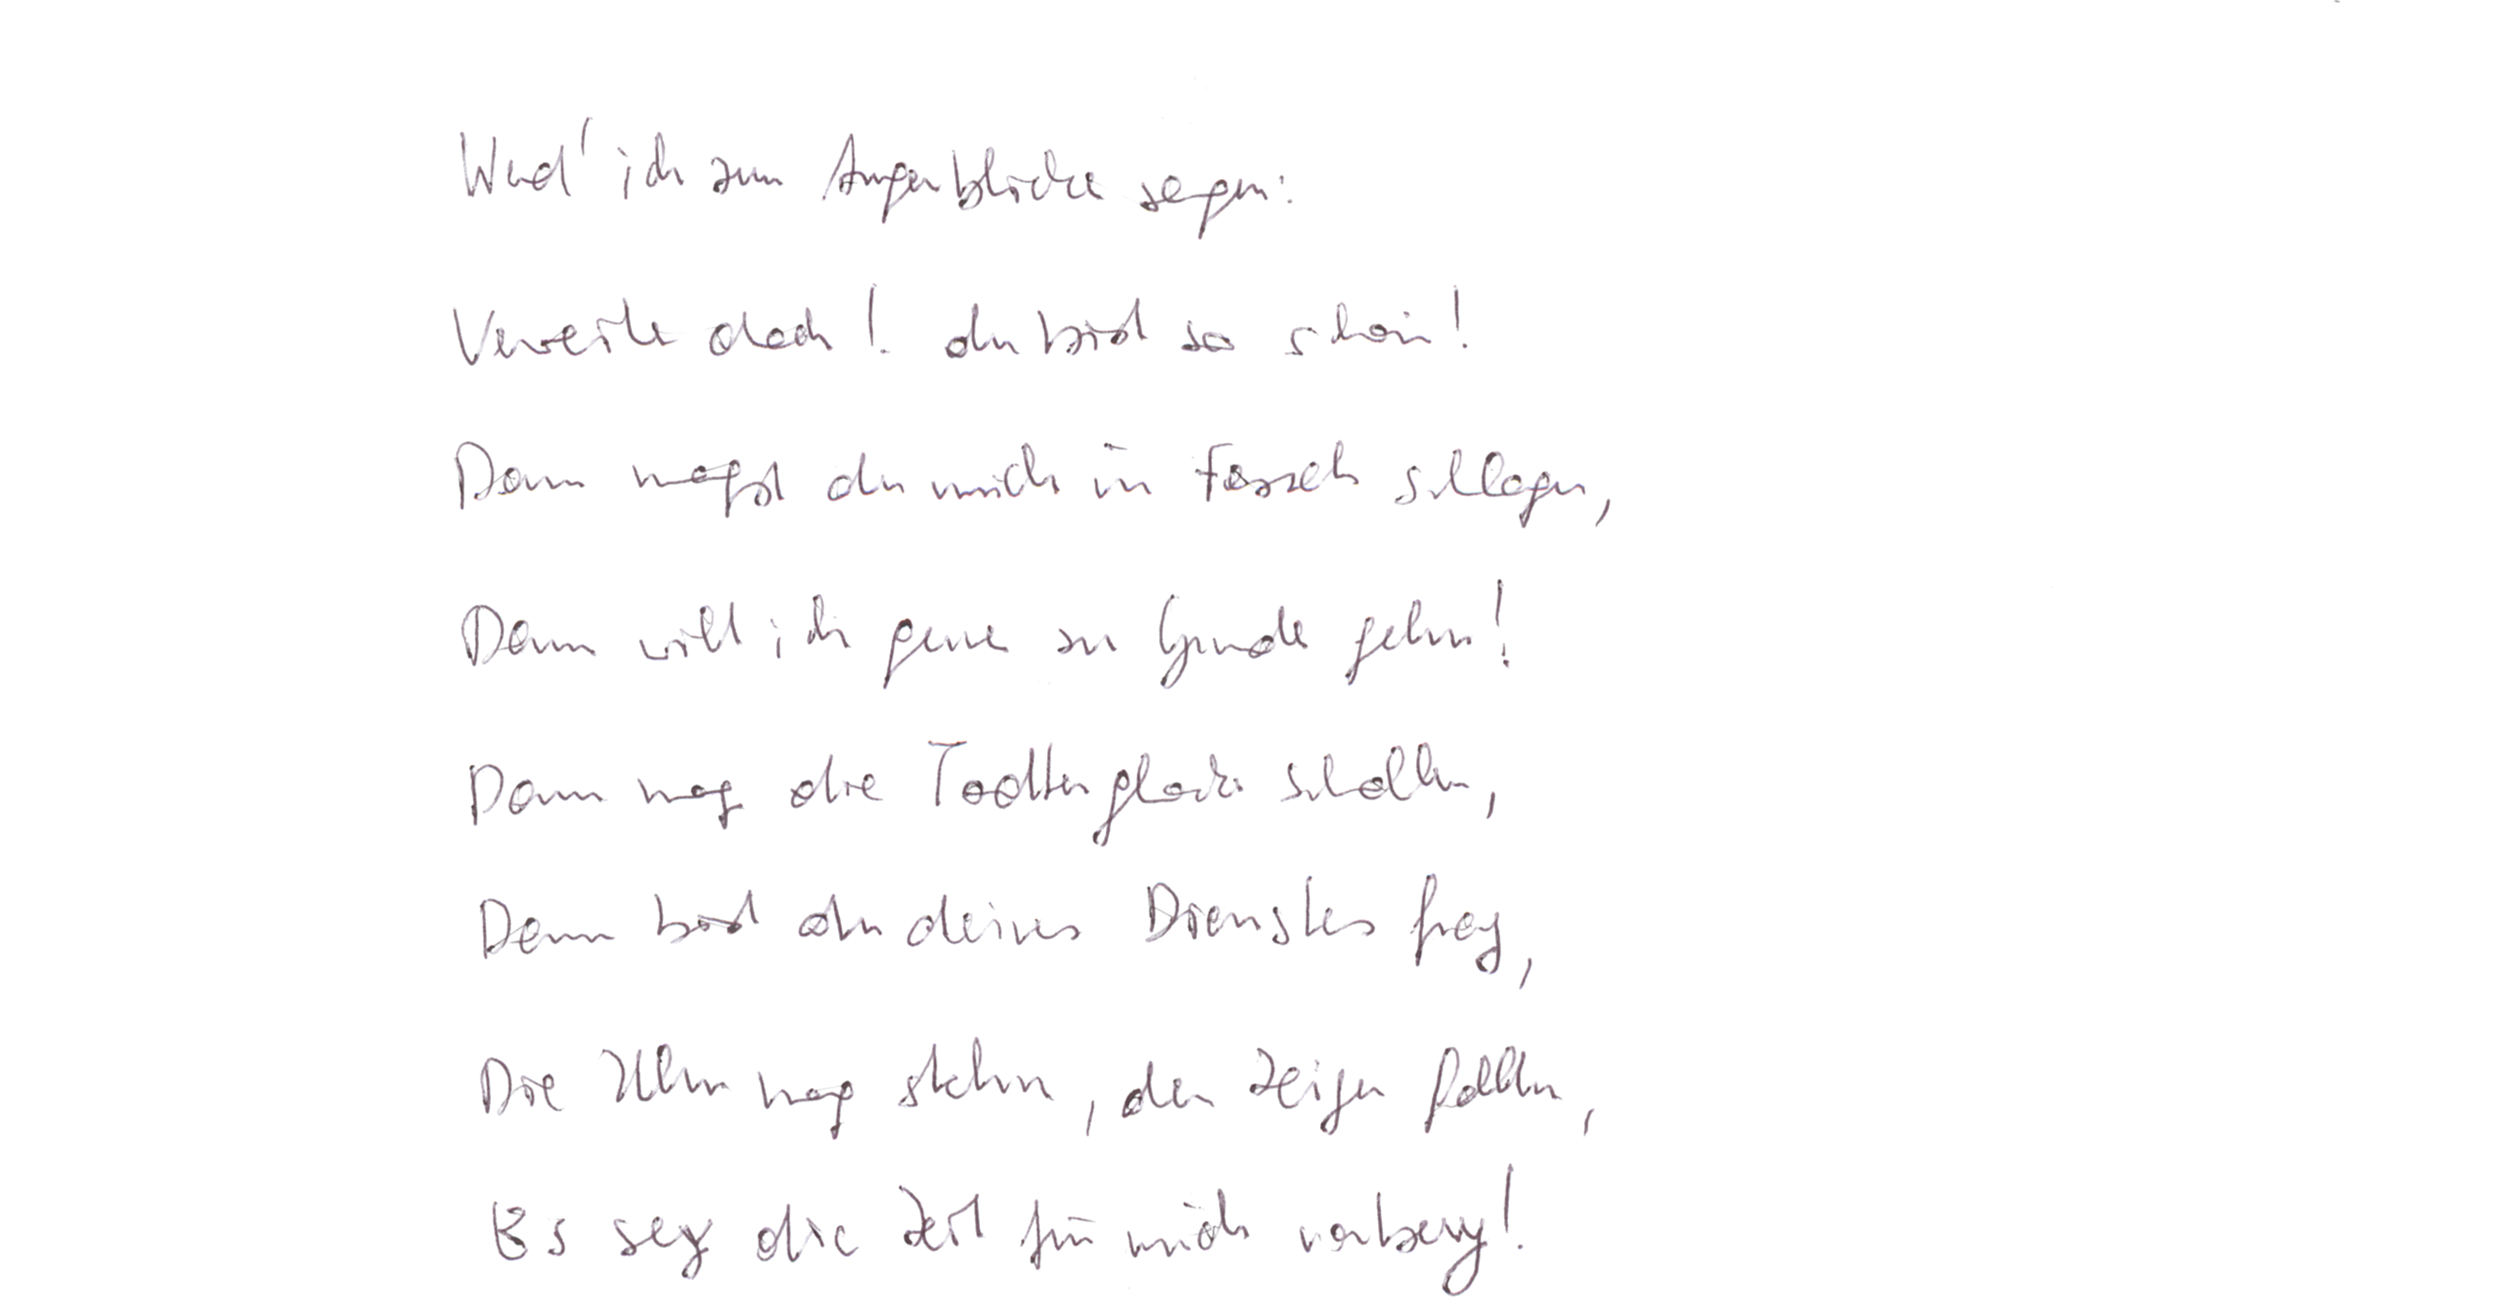 Werd' ich zum Augenblicke sagen:
Verweile doch! du bist so schön!
Dann magst du mich in Fesseln schlagen,
Dann will ich gerne zu Grunde gehn!
Dann mag die Todtenglocke schallen,
Dann bist du deines Dienstes frey,
Die Uhr mag stehn, der Zeiger fallen,
Es sey die Zeit für mich vorbey!